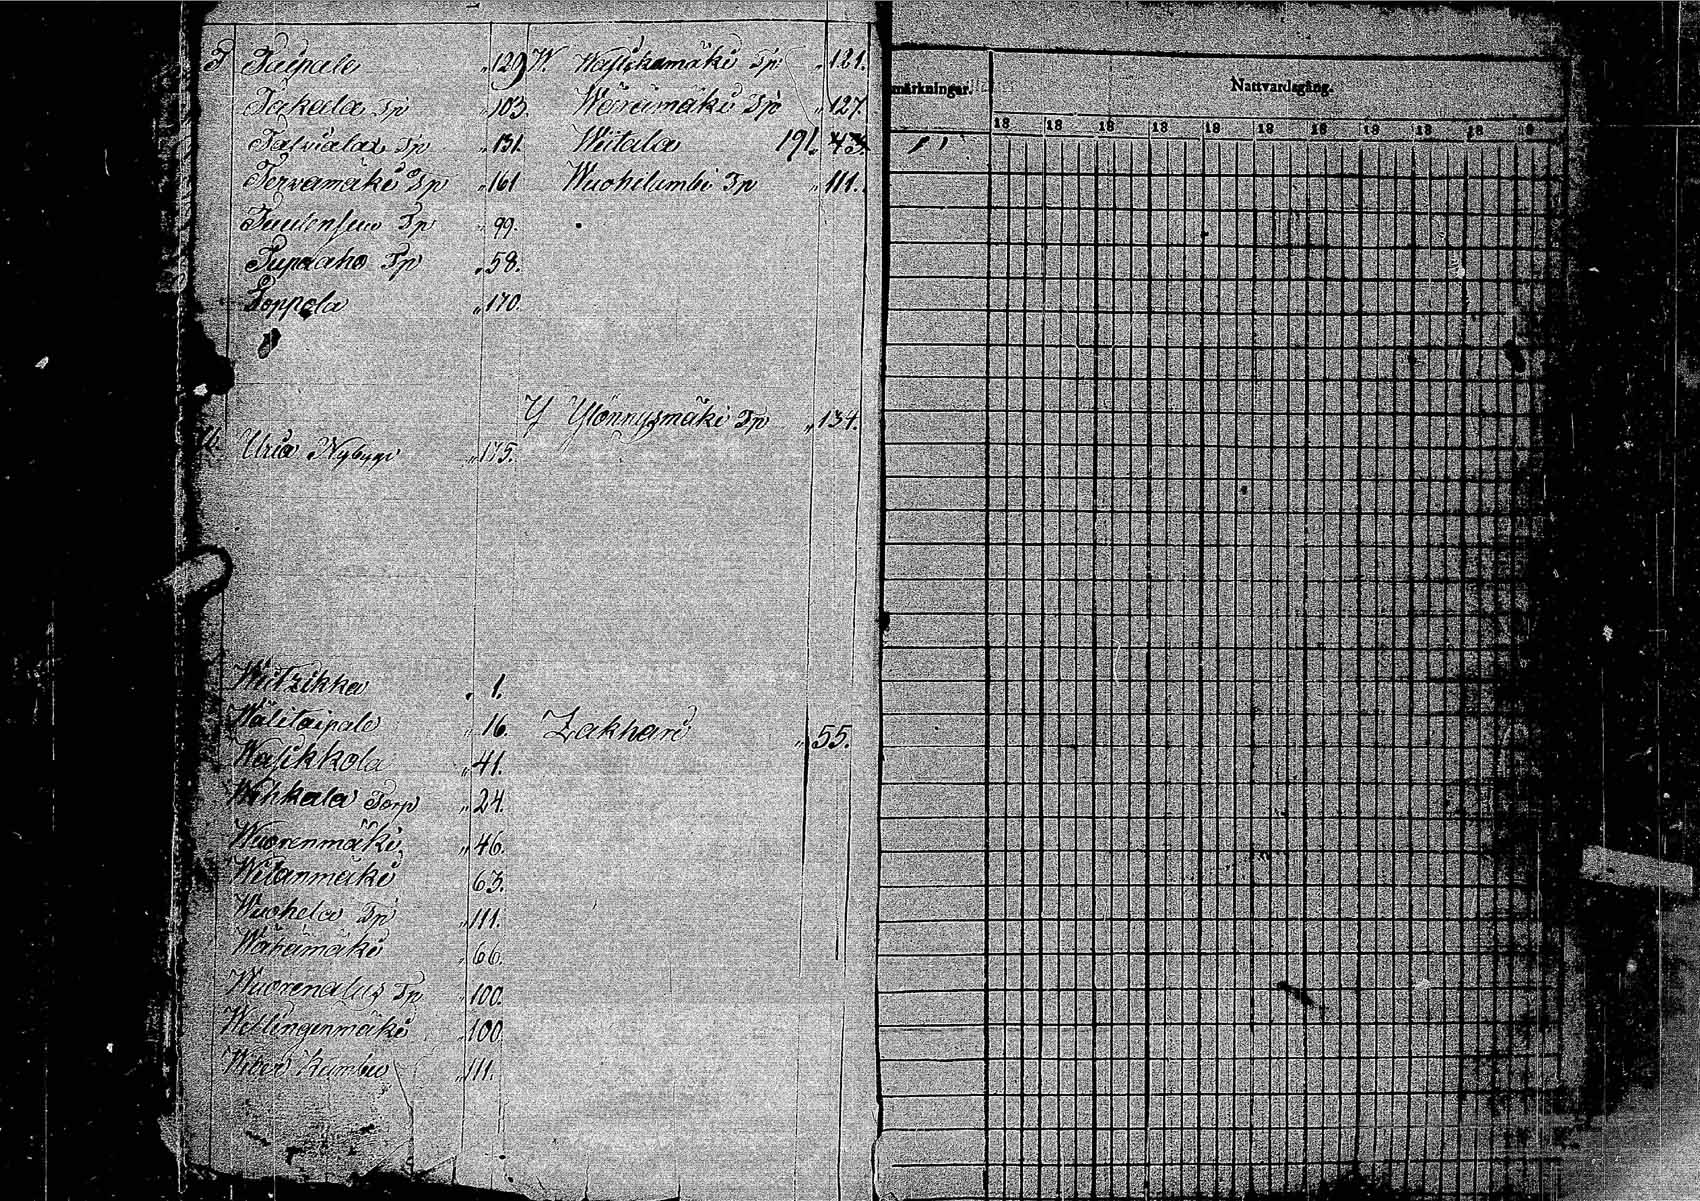 T Taipale „ 129
Takala Tp „ 103.
Talviala Tp „ 131
Tervamäki Tp „ 161
Tuulensuu Tp „ 99.
Tupaaho Tp „ 58.
Toppola „ 170.
U. Uria Nybyge „ 175.
Wiitzikka „ 1.
Wälitaipale „ 16.
Wasikkola „ 41.
Wihkala Torp „ 24.
Wuorenmäki „ 46.
Witanmäki 63.
Wuohela Tp „ 111.
Wähämäki „ 66.
Wuorenalus Tp „ 100.
Wellingenmäki „ 100.
„ 111.
W. Wasikkamäki Tp „ 121.
Tp „ 127.
Wiitala 191. „ 43.
Wuohelambi Tp „ 111.
Y Ylönnysmäki Tp „ 134.
Zakhari „ 55.
märkningar.
Nattvardsgång.
18 18 18 18 18 18 18 18 18 18 18